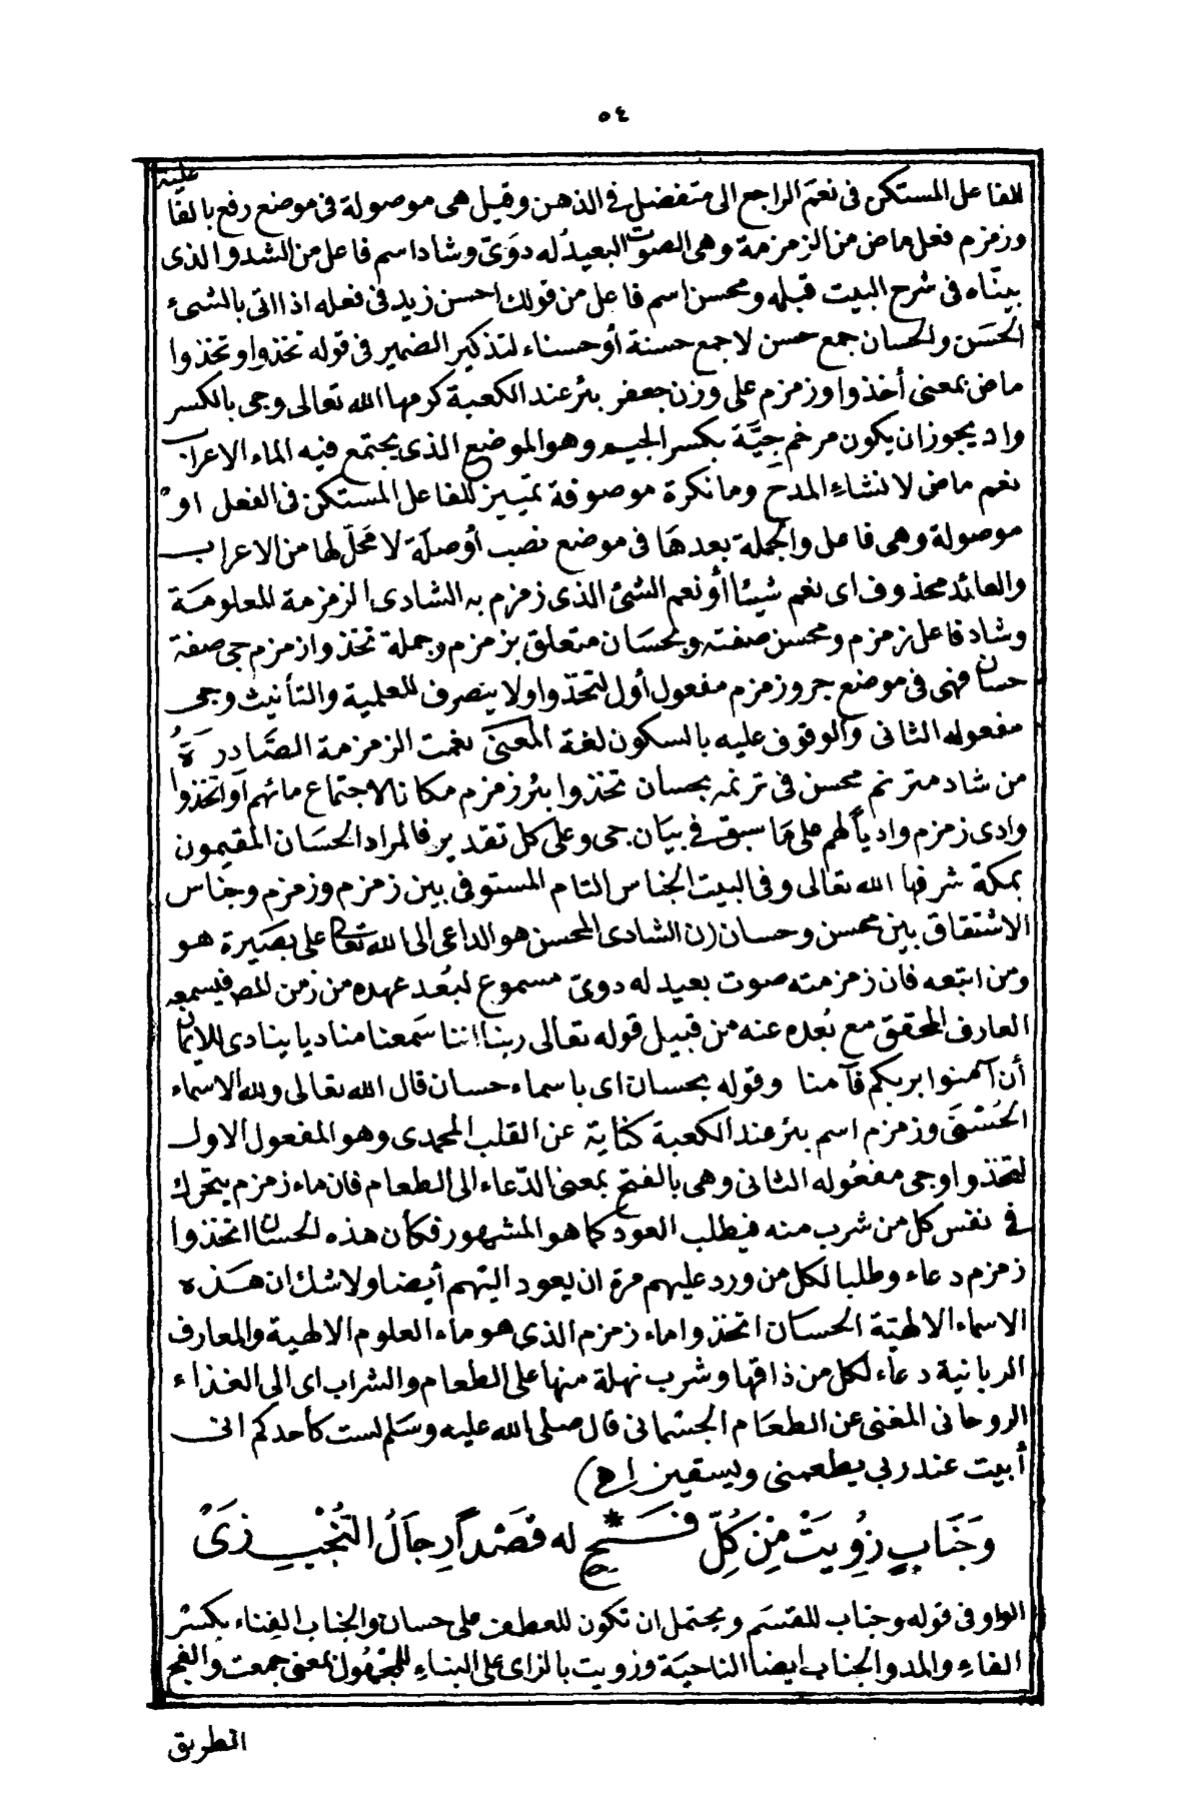 ٥٤
للفاعل المستكن فى نعم الراجع الى متفضل فى الذهن وقيل هى موصولة فى موضع رفع بالفا
علية
وزمزم فعل ماض من الزمزمة وهى الصوت البعيد له دوىّ وشاد اسم فاعل من الشدو الذى
بيناه فى شرح البيت قبله ومحسن اسم فاعل من قولك احسن زيد فى فعله اذا اتى بالشىء
الحسَن والحسان جمع حسن لا جمع حسنة أو حسناء لتذكير الضمير فى قوله تخذوا وتخذوا
ماض بمعنى أخذوا وزمزم على وزن جعفر بئر عند الكعبة كرمها الله تعالى وجى بالكسر
واد يجوز ان يكون مرخم جيَّة بكسر الجيم وهو الموضع الذى يجتمع فيه الماء الاعراب
نعم ماض لانشاء المدح وما نكرة موصوفة تمييز للفاعل المستكن فى الفعل اوْ
موصولة وهى فاعل والجملة بعدها فى موضع نصب أو صلة لا محلّ لها من الاعراب
والعائد محذوف اى نعم شيئا أو نعم الشئ الذى زمزم به الشادى الزمزمة المعلومة
وشاد فاعل زمزم ومحسن صفته وبحسان متعلق بزمزم وجملة تخذوا زمزم جى صفة
حسان فهى فى موضع جر وزمزم مفعول أول لتخذوا ولا ينصرف للعلمية والتأنيث وجى
مفعوله الثانى والوقوف عليه بالسكون لغة المعنى نعمت الزمزمة الصّادرَةُ
من شاد مترنم محسن فى ترنمه بحسان تخذوا بئر زمزم مكانا لاجتماع مائهم أو اتخذوا
وادى زمزم وادياً لهم على ما سبق فى بيان جى وعلى كل تقدير فالمراد الحسان المقيمون
بمكة شرفها الله تعالى وفى البيت الجناس التام المستوفى بين زمزم وزمزم وجناس
الاشتقاق بين محسن وحسان (ن الشادى المحسن هو الداعى الى الله تعالى على بصيرة هو
ومن اتبعه فان زمزمته صوت بعيد له دوىّ مسموع لبُعد عهده من زمن المص فيسمعه
العارف المحقق مع بُعده عنه من قبيل قوله تعالى ربنا اننا سمعنا مناديا ينادى للايمان
أن آمنوا بربكم فآمنا وقوله بحسان اى باسماء حسان قال الله تعالى ولله الاسماء
الحُسْنى وزمزم اسم بئر عند الكعبة كناية عن القلب المحمدى وهو المفعول الاول
لتخذوا وجى مفعوله الثانى وهى بالفتح بمعنى الدّعاء الى الطعام فان ماء زمزم يتحرك
فى نفس كل من شرب منه فيطلب العود كما هو المشهور فكأن هذه الحسان اتخذوا
زمزم دعاء وطلبا لكل من ورد عليهم مرة ان يعود اليهم أيضا ولا شك ان هذه
الاسماء الالهيّة الحسان اتخذوا ماء زمزم الذى هو ماء العلوم الالهية والمعارف
الربانية دعاء لكل من ذاقها وشرب نهلة منها على الطعام والشراب اى الى الغذاء
الروحانى المغنى عن الطعام الجسمانى قال صلى الله عليه وسلم لست كأحدكم انى
أبيت عند ربي يطعمنى ويسقين اه)
وَجَنَابٍ زُوِيَتْ مِنْ كُلِّ فَجٍّ * له قَصْدًا رِجَالُ النُّجْبِ زَىْ
الواو فى قوله وجناب للقسَم ويحتمل ان تكون للعطف على حسان والجناب الفناء بكسر
الفاء والمد والجناب ايضا الناحية وزويت بالزاى على البناء للمجهول بمعنى جمعت والفج
الطريق